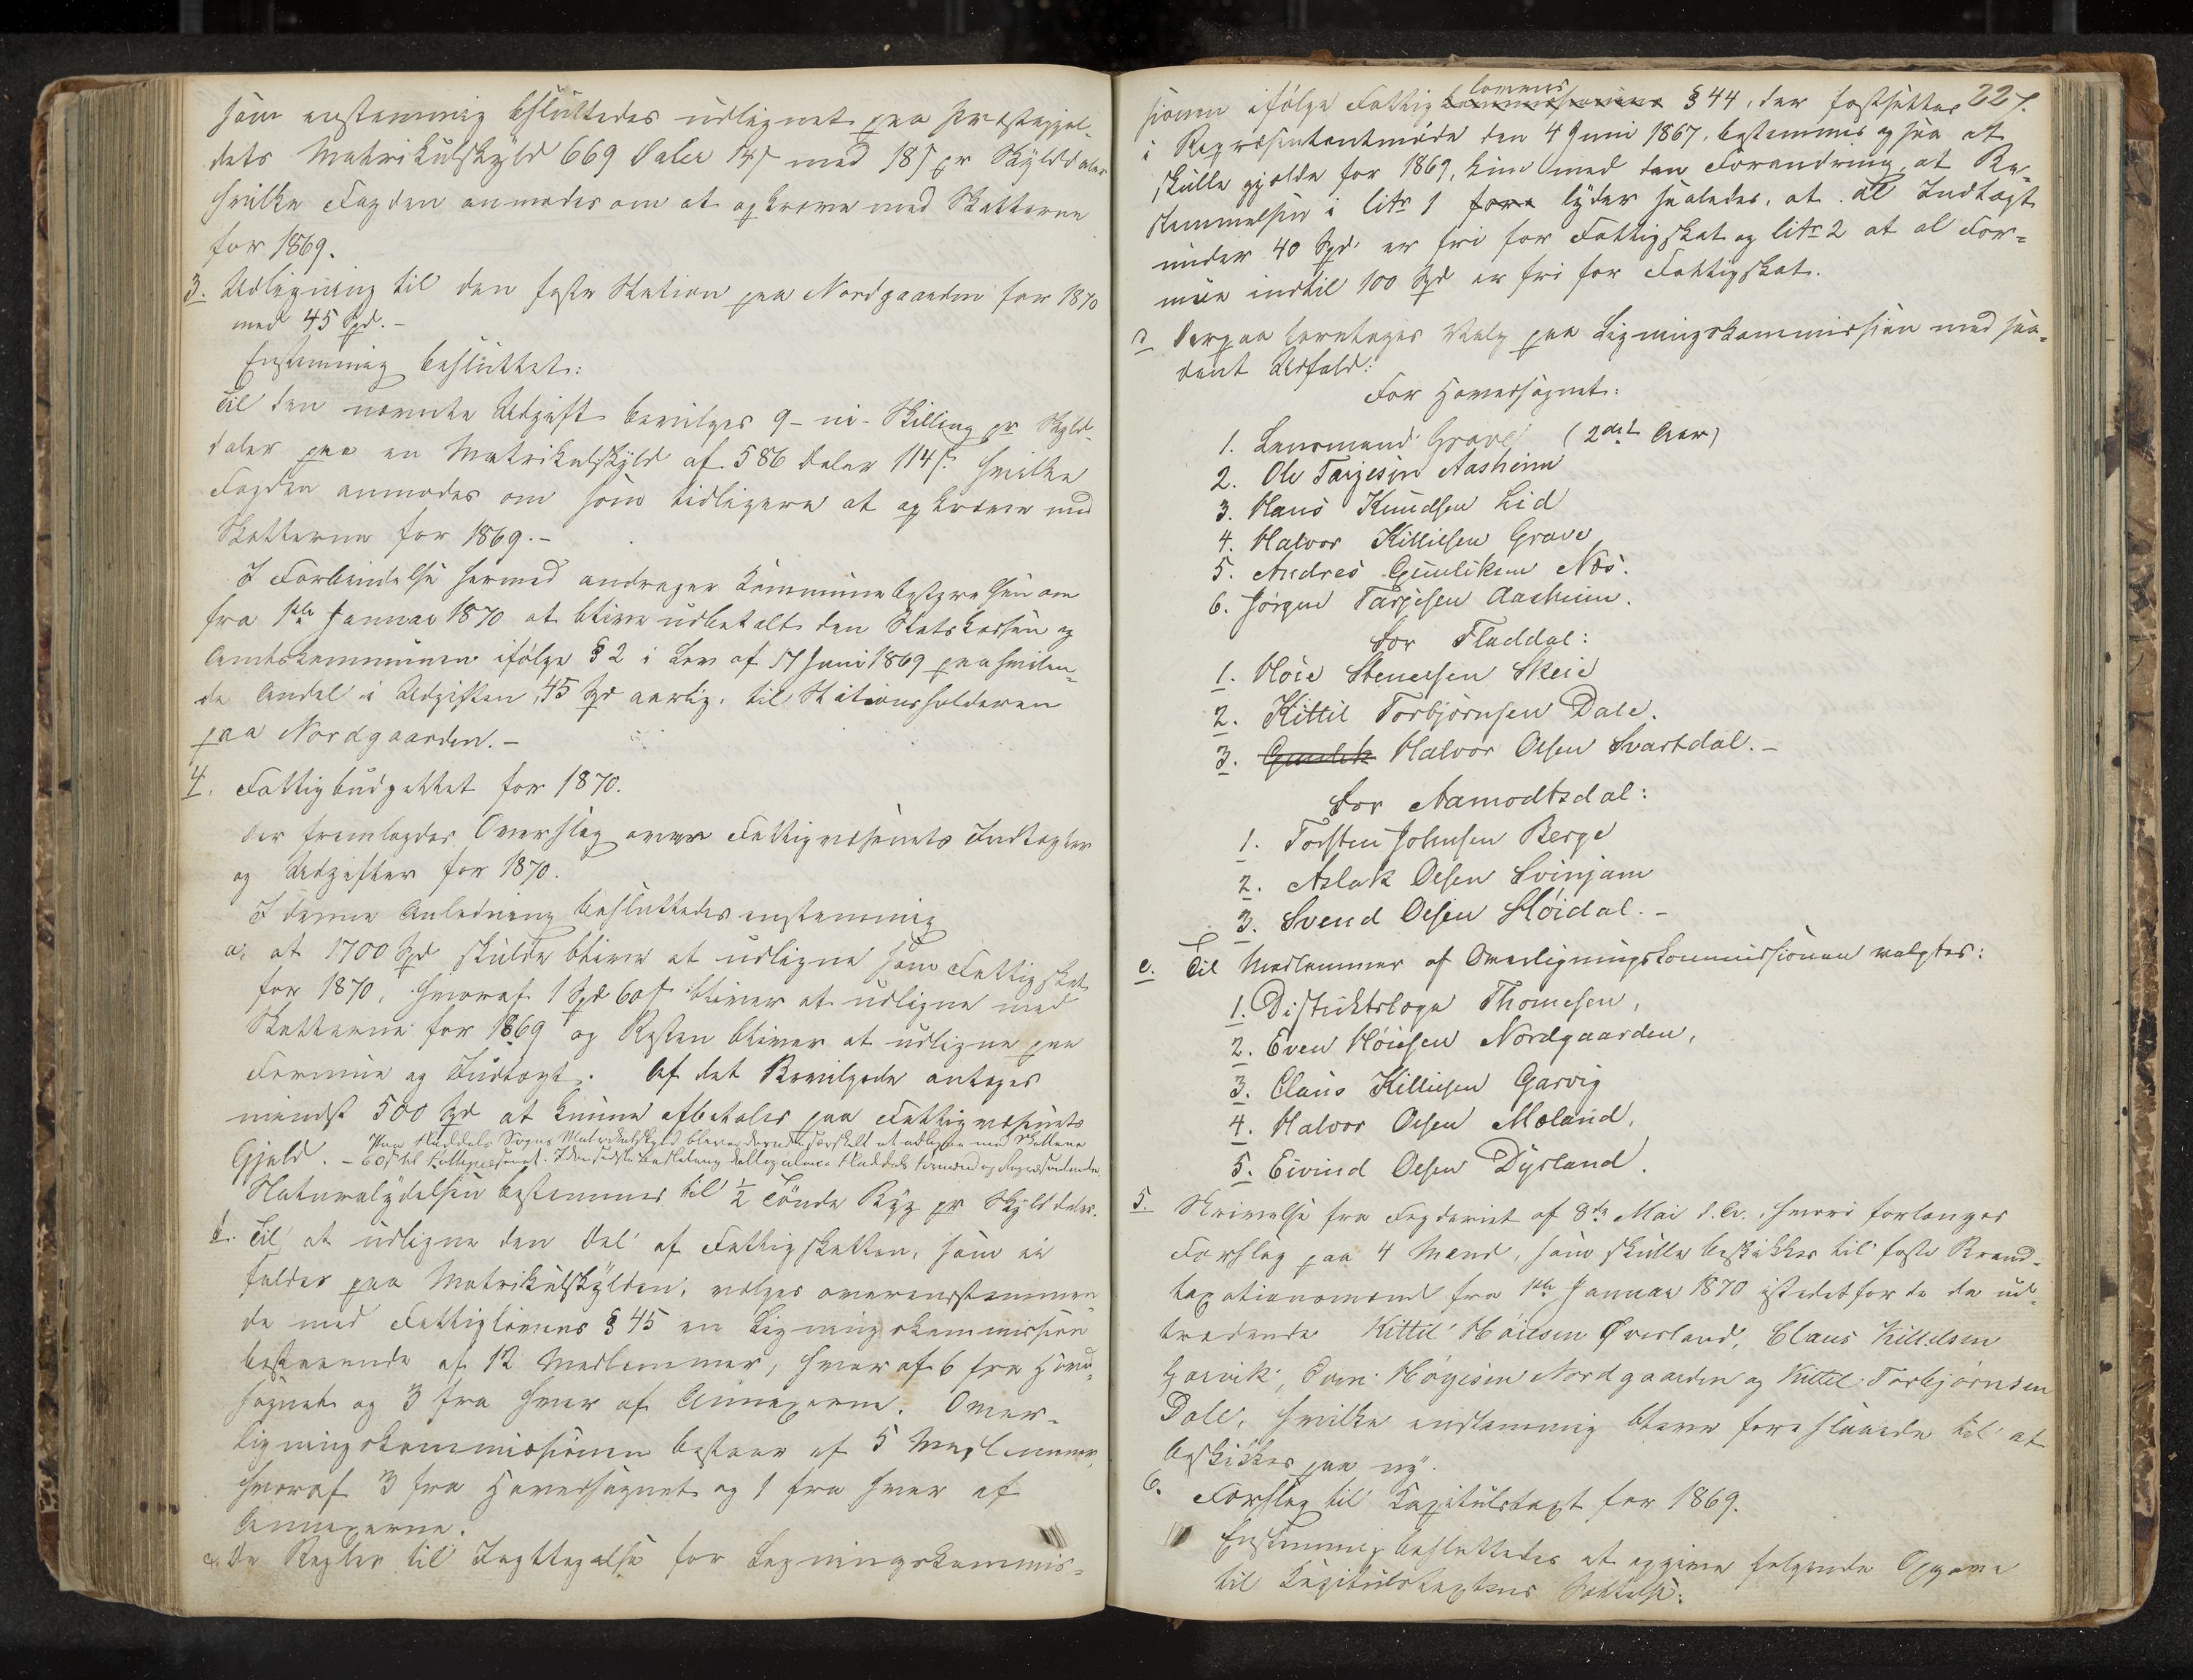 som enstemmig besluttedes udlignet paa Præstegjel-
dets Matrikulskyld 669 Daler 14 ß med 18 ß pr Skylddaler
hvilke Fogden anmodes om at opkræve med Skatterne
for 1869.
3. Udligning til den faste Station paa Nordgaarden for 1870
med 45 Spd. -
Enstemmig besluttet:
Til den nævnte Udgift bevilges 9 - ni - Skilling pr Skyld-
daler paa en Matrikulskyld af 586 Daler 114 ß. hvilke
Fogden anmodes om som tidligere at opkræve med
Skatterne for 1869. -
I Forbindelse hermed andrager Kommunebestyrelsen om
fra 1ste Januar 1870 at blive udbetalt den Statskassen og
Amtskommunen ifølge § 2 i Lov af 17 Juni 1869 paahvilen-
de Andel i Udgiften, 45 Spd aarlig, til Stationsholderen
paa Nordgaarden. -
4. Fattigbudgettet for 1870.
Der fremlagdes Overslag over Fattigvæsenets Indtægter
og Udgifter for 1870.
I denne Anledning besluttedes enstemmig
a. at 1700 Spd skulde blive at udligne som Fattigskat
for 1870, hvoraf 1 Spd 60 ß bliver at udligne med
Skatterne for 1869 og Resten bliver at udligne paa
Formue og Indtægt. Af det Bevilgede antages
mindst 500 Spd at kunne afbetales paa Fattigvæsenets
Paa Fladdals Sogns Matrikulskyld bliver desuden særskilt at udligne med Skattene
Gjeld. - 60 ß til Fattigvæsenet. I den sidste Beslutning deltog alene Fladdals Formænd og Repræsentanter.
Naturalydelsen bestemmes til ½ Tønde Byg pr Skylddaler.
b. Til at udligne den Del af Fattigskatten, som ei
falder paa Matrikulskylden, vælges overensstemmen
de med Fattiglovens § 45 en Ligningskommission
bestaaende af 12 Medlemmer, hvoraf 6 fra Hoved-
sognet og 3 fra hver af Annexerne. Over-
ligningskommissionen bestaar af 5 Medlemmer,
hvoraf 3 fra Hovedsognet og 1 fra hver af
Annexerne.
c. De Regler til Iagttagelse for Ligningskommis-
227.
lovens
sionen ifølge Fattig § 44, der fastsattes
i Repræsentantmøde den 4 Juni 1867, bestemmes ogsaa at
skulle gjelde for 1869, kun med den Forandring at Be-
stemmelsen i litr 1 lyder saaledes, at al Indtægt
under 40 Spd. er fri for Fattigskat og litr 2 at al For-
mue indtil 100 Spd er fri for Fattigskat.
d Derpaa foretages Valg paa Ligningskommission med saa-
dant Udfald:
For Hovedsognet:
1. Lensmand Grave (2det Aar)
2. Ole Targesen Aasheim
3. Hans Knudsen Lid
4. Halvor Kittilsen Grave
5. Andres Gunliksen Næs.
6. Jørgen Tarjesen Aasheim.
For Fladdal:
1. Høie Stenersen Skeie
2. Kittil Torbjørnsen Dale.
3. Gunlek Halvor Olsen Svartdal. -
For Aamodtsdal:
1. Torsten Johnsen Berge
2. Aslak Olsen Svinjam
3. Svend Olsen Høidal. -
e. Til Medlemmer af Overligningskommissionen valgtes:
1. Distriktslæge Thomesen,
2. Even Høiesen Nordgaarden,
3. Claus Kittilsen Garvig
4. Halvor Olsen Moland,
5. Eivind Olsen Dyrland.
5. Skrivelse fra Fogderiet af 8de Mai d. A., hvori forlanges
Forslag paa 4 Mænd, som skulle beskikkes til faste Brand-
taxationsmænd fra 1ste Januar 1870 istedetfor de da ud-
trædende Kittil Høilsen Øverland, Claus Kittilsen
Garvik, Even Høyesen Nordgaarden og Kittil Torbjørnsen
Dale, hvilke enstemmig bleve foreslaaede til at
beskikkes paa ny.
6. Forslag til Kapitulstaxt for 1869.
Enstemmig besluttedes at opgive følgende Opgave
til Kapitulstaxtens Sættelse: